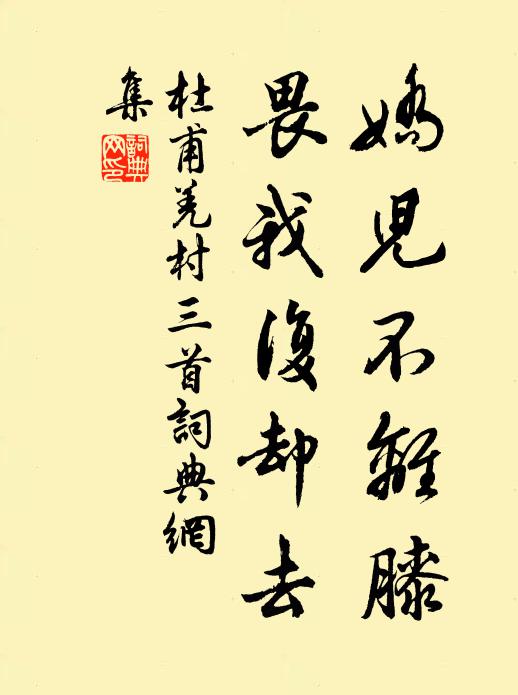 嬌兒不離膝
畏我復却去
杜甫羌村三首詞典網
集
詞典网印